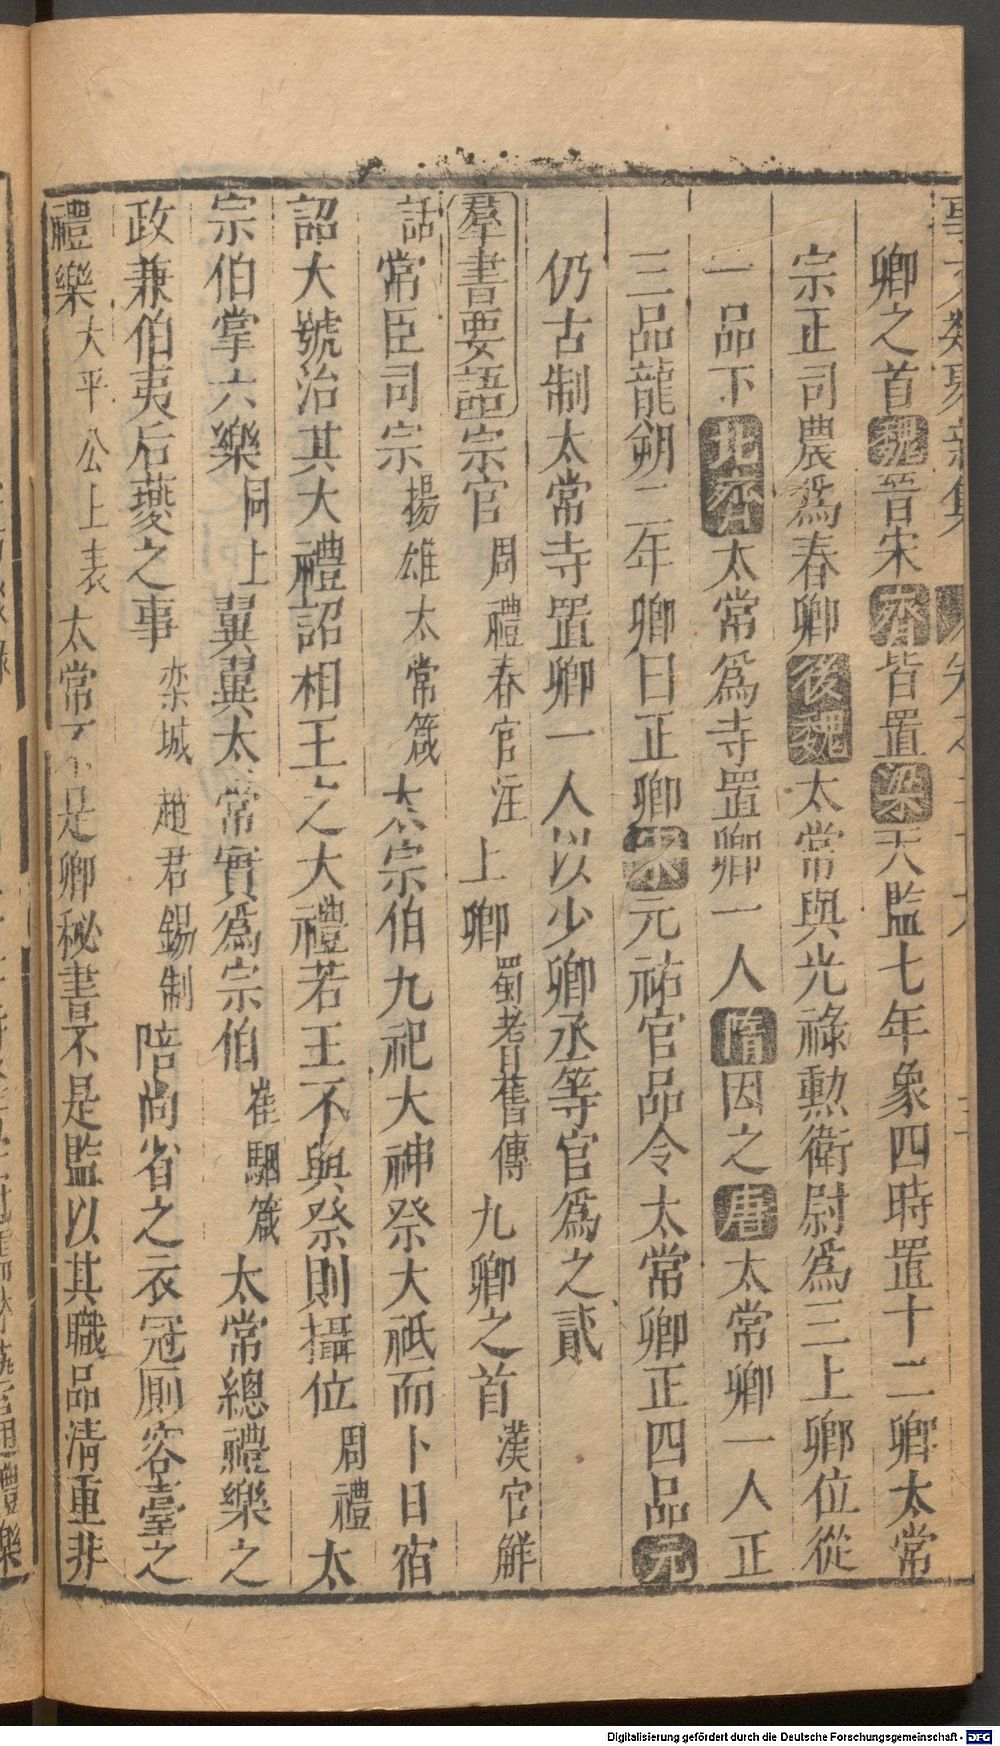 卿之首魏晉宋齊皆置梁天監七年象四時置十二卿太常
宗正司農爲春卿後魏太常與光祿勲衛尉爲三上卿位從
一品下北齊太常爲寺置卿一人隋因之唐太常卿一人正
三品龍朔二年卿曰正卿宋元祐官品令太常卿正四品元
仍古制太常寺置卿一人以少卿丞等官爲之貳
羣書要語宗官周禮春官注上卿蜀耆舊傳九卿之首漢官解
詁常臣司宗揚雄太常箴大宗伯九祀大神祭大祗而卜日宿
詔大號治其大禮詔相王之大禮若王不與祭則攝位周禮太
宗伯掌六樂同上翼翼太常實爲宗伯崔駰箴太常總禮樂之
政兼伯夷后夔之事栾城趙君錫制陪尚省之衣冠厠容臺之
禮樂大平公上表太常 是卿秘書不是監以其職品清重非
Digitalisierung gefördert durch die Deutsche Forschungsgemeinschaft - DFG